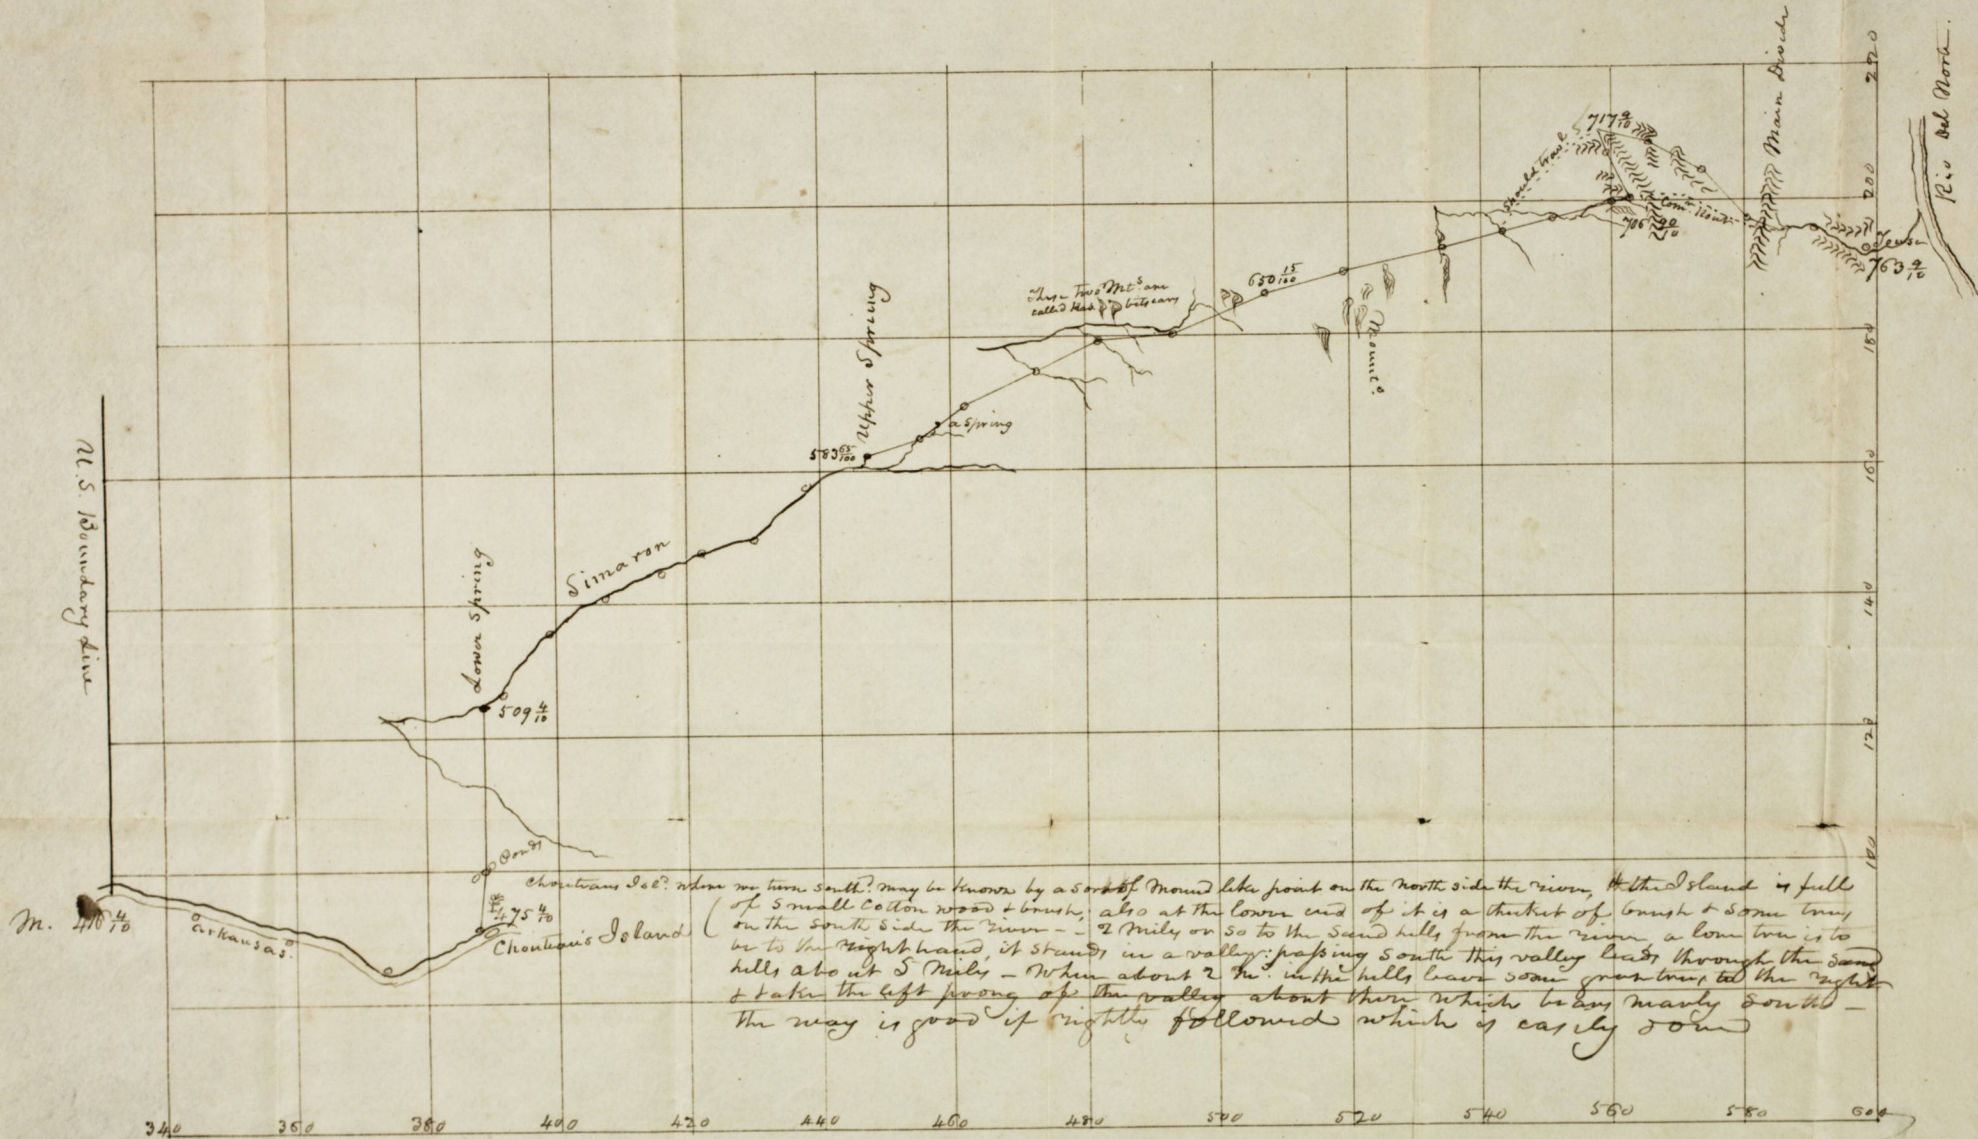 220
Rio Del Norte.
Main Divide
717 9/10
should travel
200
Com. Rout
706 90/10
Teusa
763 9/10
650 15/100
These two Mts. are
called Rabbits ears
Mounts.
180
Upper Spring
a Spring
583 65/100
160
U. S. Boundary Line
Simaron
140
Lower Spring
509 4/10
120
Ponds
100
M. 416 4/10
Arkansas.
475 4/10
Choutaus Island
Choutaus Isld. where we turn south. may be known by a sort of Mound like point on the north side the river, the Island is full
of small Cotton wood & brush; also at the lower end of it is a thicket of brush & some trees
on the south side the river - - 2 miles or so to the sand hills from the river a lone tree is to
be to the right hand, it stands in a valley: passing south this valley leads through the sand
hills about 5 Miles - When about 2 m. in the hills leave some green trees to the right
& take the left prong of the valley about there which bears nearly South -
the way is good if rightly followed which is easily done
340 360 380 400 420 440 460 480 500 520 540 560 580 600